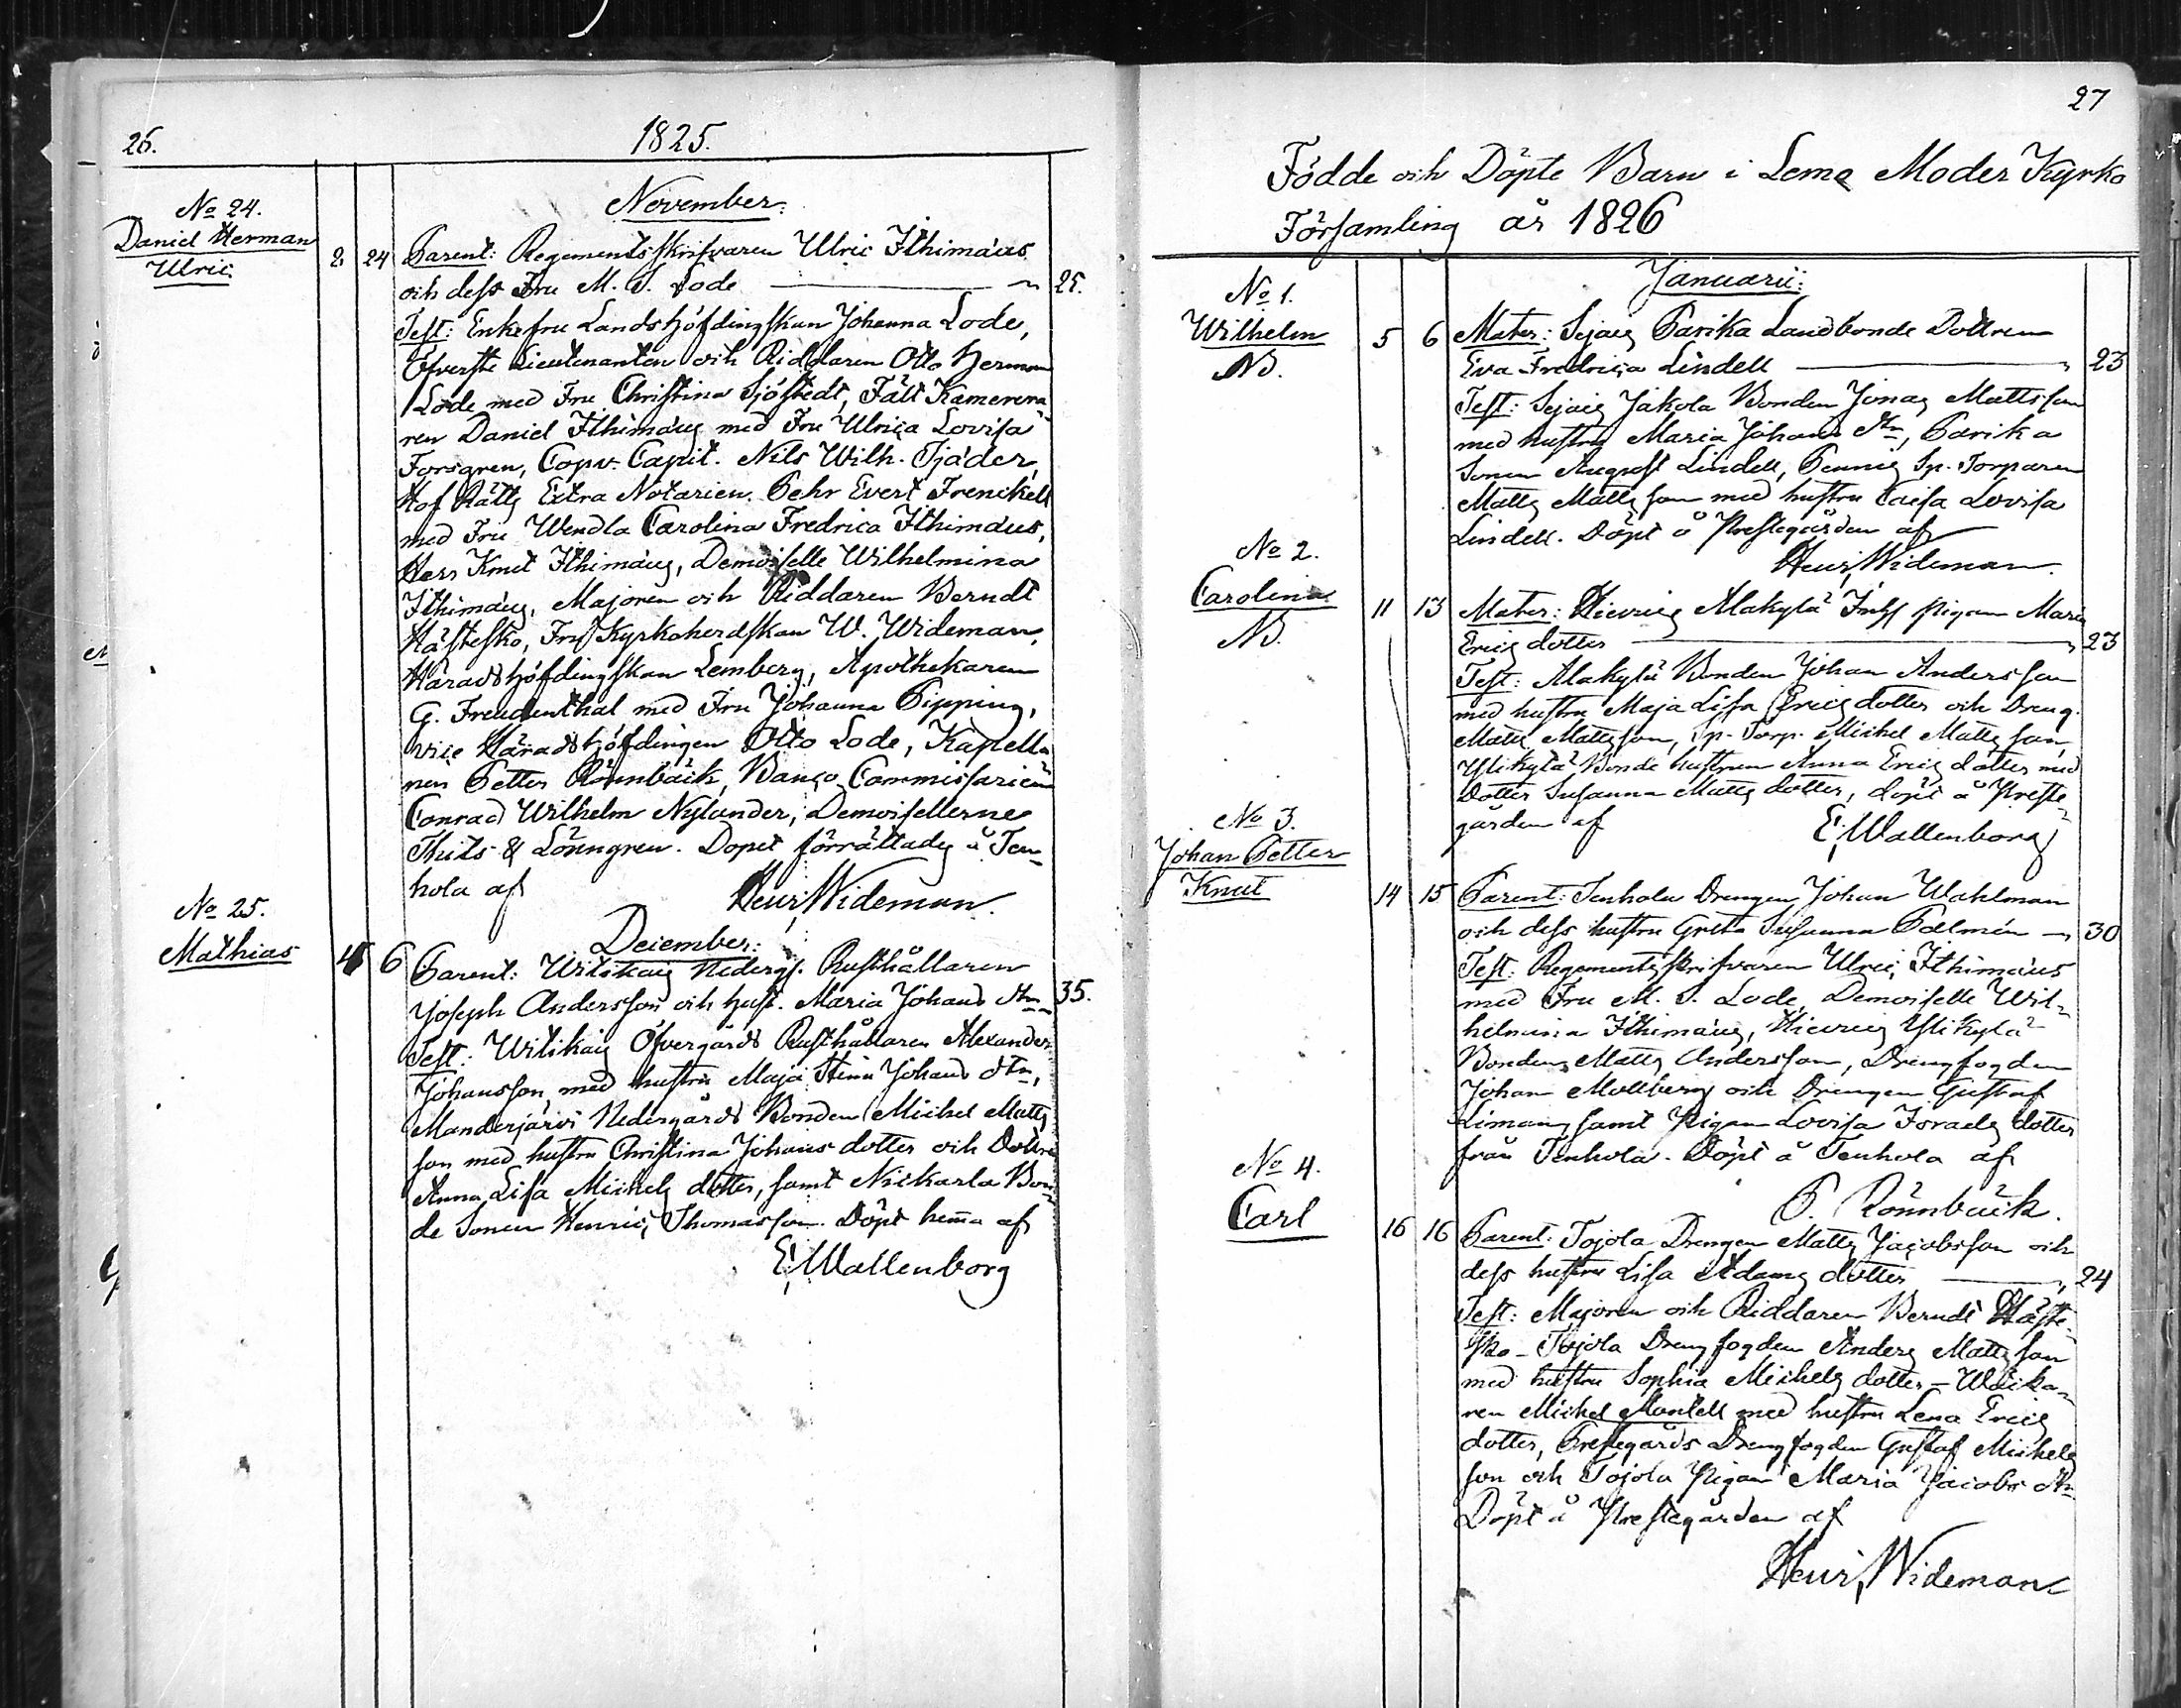 26.
1825.
November:
No 24.
Daniel Herman
Ulric
2 24 Parent: Regementsskrifvaren Ulric Ithimæus
och dess Fru M. S. Lode 25.
Test: Enkefru Landshöfdingskan Johanna Lode,
Öfverste Lieutenanten och Riddaren Otto Herman
Lode med Fru Christina Sjöstedt, Fält Kamerera
ren Daniel Ithimæus med Fru Ulrica Lovisa
Forsgren, Copv. Capit. Nils Wilh. Tjäder,
Hof Rätts Extra Notarien Pehr Evert Frenckell
med Fru Wendla Carolina Fredrica Ithimæus,
Herr Knut Ithimæus, Demoiselle Wilhelmina
Ithimæus, Majoren och Riddaren Berndt
Hästesko, Fru Kyrkoherdskan W. Wideman,
Häradshöfdingskan Lemberg, Apothekaren
G. Freudenthal med Fru Johanna Pipping,
vice Häradshöfdingen Otto Lode, Kapella
nen Petter Rönnbäck, Banco Commissarien
Conrad Wilhelm Nylander, Demoisellerne
Thits & Lönngren. Dopet förrättades å Ten-
hola af Henric Wideman.
December:
No 25.
Mathias
4 6 Parent: Witikais Nederg. Rusthållaren
Joseph Andersson och hust. Maria Johans dtr 35.
Test: Witikais Öfvergårds Rusthållaren Alexander
Johansson, med hustru Maja Stina Johans dtr,
Manderjärvi Nedergårds Bonden Michel Matts
son med hustru Christina Johans dotter och Dottren
Anna Lisa Michels dotter, samt Nickarla Bon-
de Sonen Henric Thomasson. Döpt hema af
E. Wallenborg
27
Födde och Döpte Barn i Lemo Moder Kyrko
Församling år 1826
Januarii:
No 1.
Wilhelm
NB.
5 6 Mater: Sejais Parika Landbonde Dottren
Eva Fredrica Lindell 23
Test: Sejais Jakola Bonden Jonas Mattsson
med hustru Maria Johans dtr, Parika
Sonen August Lindell, Pennis Sp. Torparen
Matts Mattsson med hustru Caisa Lovisa
Lindell. Döpt å Prestegården af
Henric Wideman.
No 2.
Carolina
NB.
11 13 Mater: Hievois Alakylä Inhs pigan Maria
Erics dotter 23
Test: Alakylä Bonden Johan Andersson
med hustru Maja Lisa Erics dotter och Dreng
Matts Mattsson, Sp. Torp. Michel Mattsson
Ylikylä Bonde hustrun Anna Erics dotter med
Dotter Susanna Matts dotter, döpt å Preste-
gården af E. Wallenborg
No 3.
Johan Petter
Knut
14 15 Parent: Tenhola Drengen Johan Wahlman
och dess hustru Greta Susanna Palmén 30
Test: Regementsskrifvaren Ulric Ithimæus
med Fru M. S. Lode, Demoiselle Wil-
helmina Ithimæus, Hievois Ylikylä
Bonden Matts Andersson, Drengfogden
Johan Mollberg och Drengen Gustaf
Limans samt Pigan Lovisa Israels dotter
från Tenhola. Döpt å Tenhola af
P. Rönnbäck.
No 4.
Carl
16 16 Parent: Tojola Drengen Matts Jacobsson och
dess hustru Lisa Adams dotter 24
Test: Majoren och Riddaren Berndt Häste-
sko - Tojola Drengfogden Anders Mattsson
med hustru Sophia Michels dotter -
ren Michel Mantell med hustru Lena Erics
dotter, Prestegårds Drengfogden Gustaf Michels
son och Tojola Pigan Maria Jacobs dtr
Döpt å Prestegården af
Henric Wideman